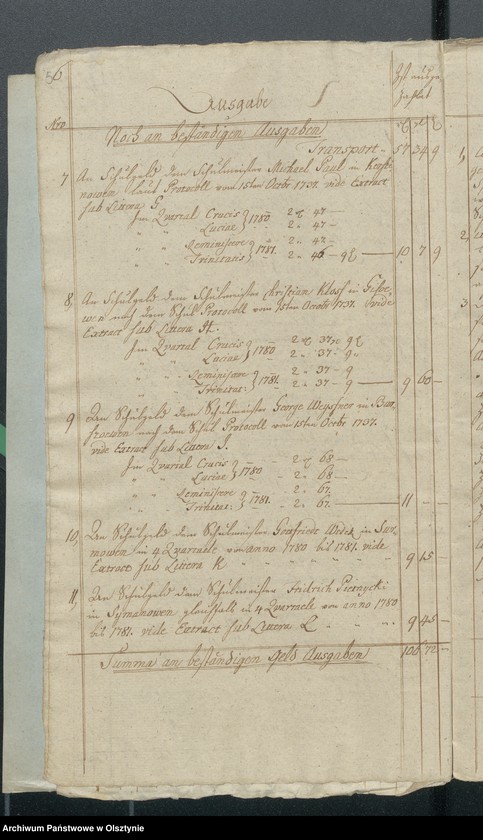 56
Ausgabe
Ist ausge
zahlet
Nro
Noch an beständigen Ausgaben
Transport 57 34 9
7 An Schulgeld dem Schulmeister Michael Paul in
nowen laut Protocoll vom 15ten Octbr 1737. vide Extract
sub Littera G
Im Quartal Crucis 1780 2 47 —
" " Luciae 2 " 47 —
" " Reminiscere 1781. 2 " 47 —
" " Trinitatis 2 " 46 — 9 — 10 7 9
8, An Schulgeld dem Schulmeister Christian in
wen nach dem Schul Protocoll vom 15ten Octobr 1737. vide
Extract sub Littera H.
Im Quartal Crucis 1780 2 37 9
" " Luciae 2 " 37 — 9
" " Reminiscere 1781. 2 — 37 — 9
" " Trinitat: 2 — 37 — 9 — 9 60 —
9 Den Schulgeld dem Schulmeister George in
nach dem Schul Protocoll vom 15ten Octbr 1737.
vide Extract sub Littera I.
Im Quartal Crucis 1780 2 68 —
" " Luciae 2 " 68 —
" " Reminiscere 1781. 2 " 67.
" " Trinitat: 2 " 67. — 11 — —
10, Den Schulgeld dem Schulmeister Gottfriedt in
nowen in 4 Quartaele von anno 1780 bis 1781. vide
Extract sub Littera K " " " " 9 15 —
11, Den Schulgeld dem Schulmeister Fridrich
in gleichfalls in 4 Quartaele von anno 1780
bis 1781. vide Extract sub Littera L " " " 9 45 —
Summa an beständigen Geld Ausgaben 106 72 —
Archiwum Państwowe w Olsztynie